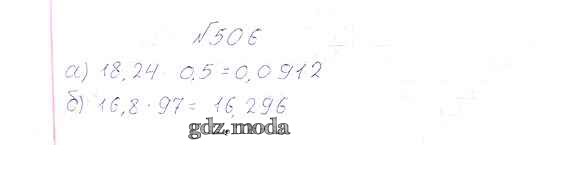 №506
а) 18,24 · 0,5 = 0,0912
б) 16,8 · 97 = 16,296
gdz.moda